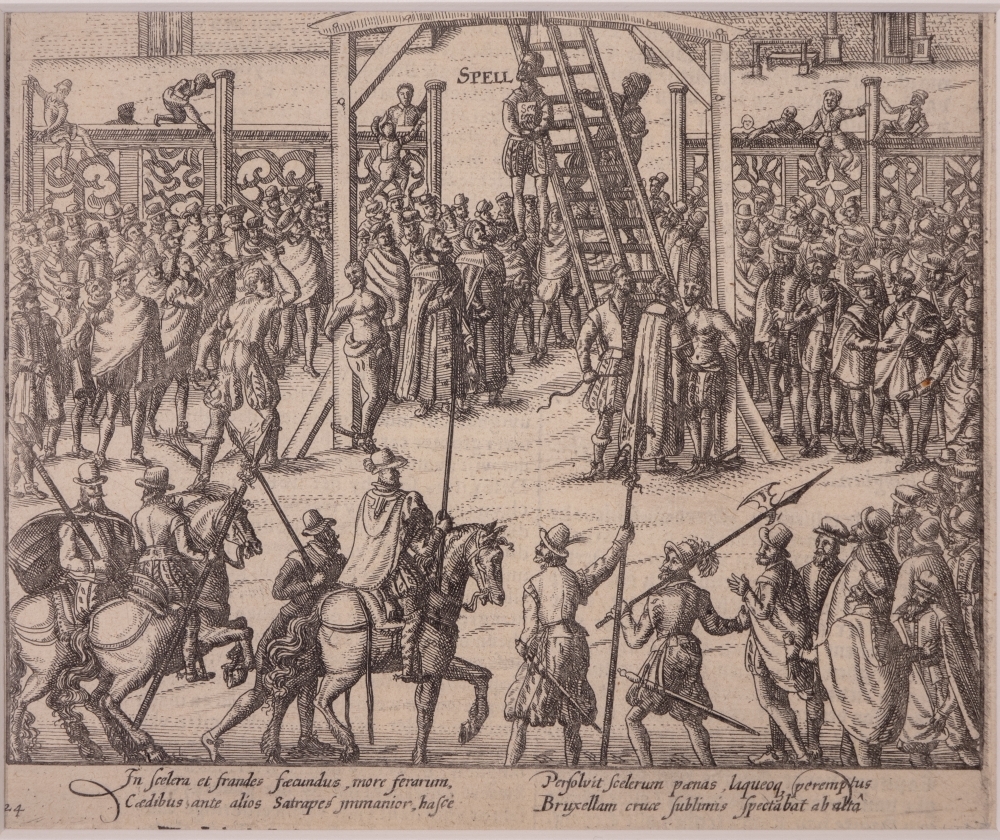 SPELL
In scelera et fraudes fæcundus, more ferarum,
Cædibus, ante alios Satrapes jmmanior, hasce
Persolvit scelerum pænas, laqueoq peremptus
Bruxellam cruce sublimis spectabat ab altâ
24